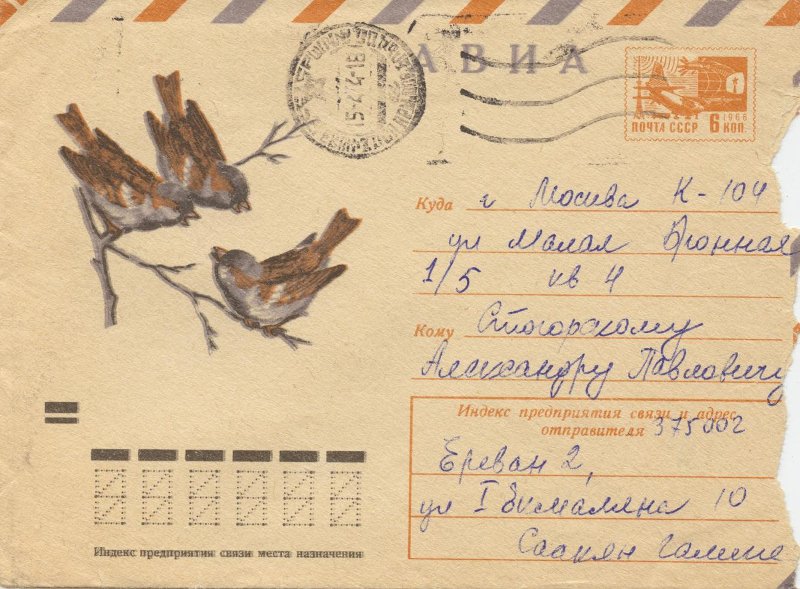 АВИА
ПОЧТА СССР 6 КОП.
1966
Куда г Москва К-104
ул Малая Бронная
1/5 кв 4
Кому Стогорскому
Александру Павловичу
Индекс предприятия связи и адрес
отправителя 375002
Ереван 2,
ул 10
Саакян Галине
Индекс предприятия связи места назначения